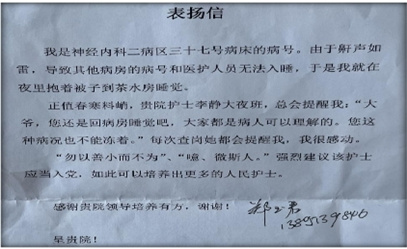 表扬信
我是神经内科二病区三十七号病床的病号。由于鼾声如
雷，导致其他病房的病号和医护人员无法入睡，于是我就在
夜里抱着被子到茶水房睡觉。
正值春寒料峭，贵院护士李静大夜班，总会提醒我：“大
爷，您还是回病房睡觉吧，大家都是病人可以理解的。您这
种病况也不能冻着。”每次查岗她都会提醒我，我很感动。
“勿以善小而不为”、“噫、微斯人。”强烈建议该护士
应当入党，如此可以培养出更多的人民护士。
感谢贵院领导培养有方，谢谢！
1385139846
早贵院！